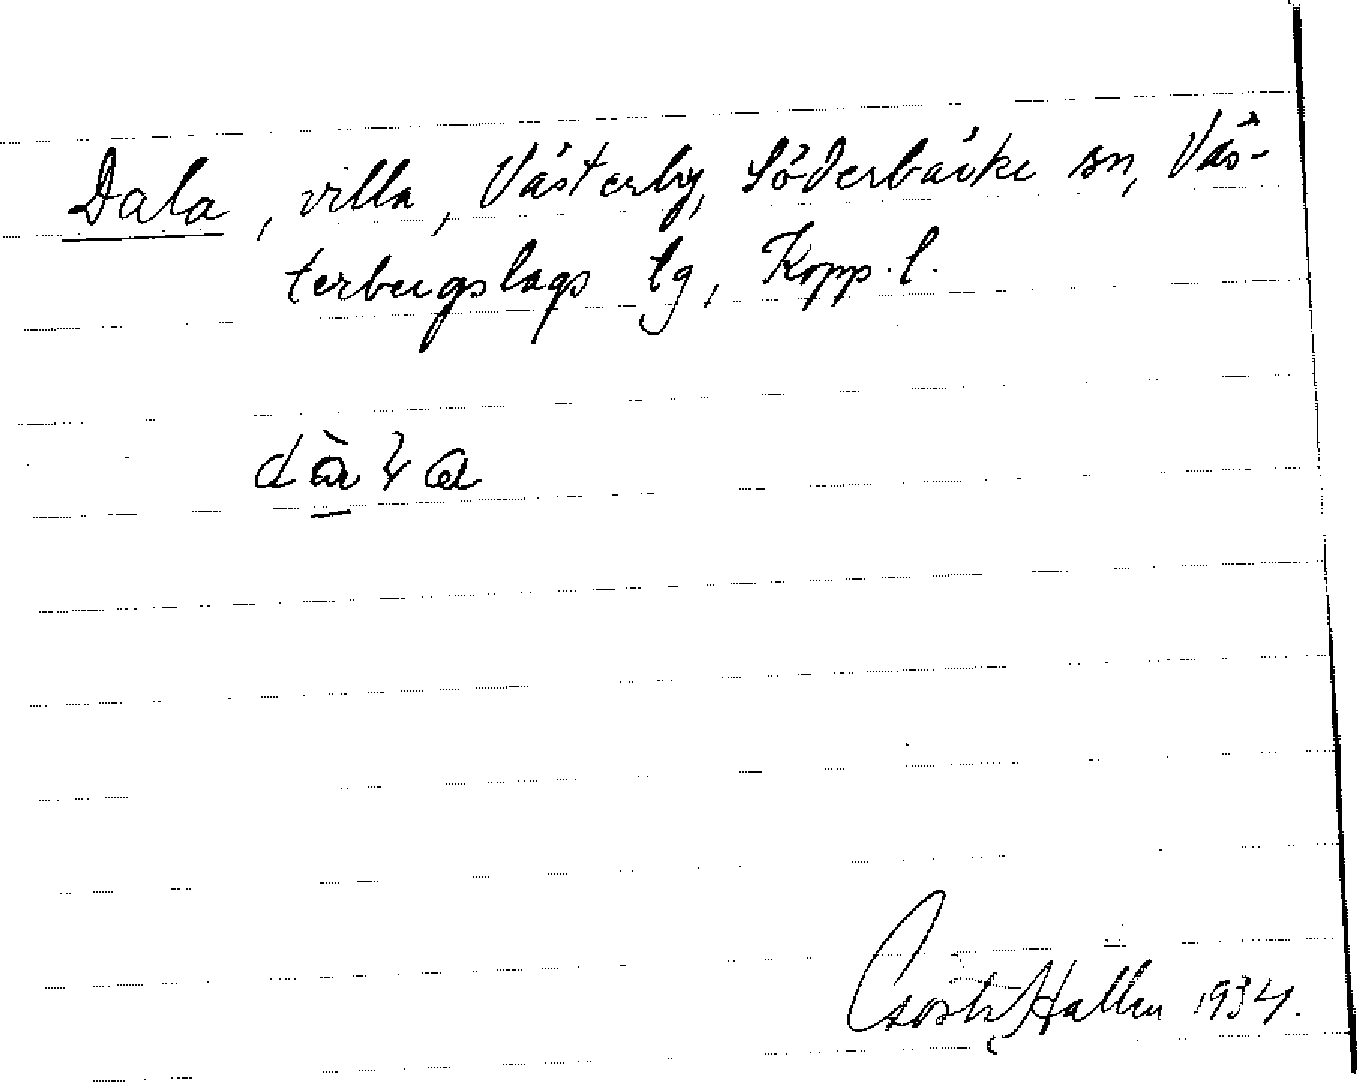 Dala, villa, Västerby, Söderbärke sn, Väs-
terbergslags tg, Kopp. l.
Gösta Hallén 1934.